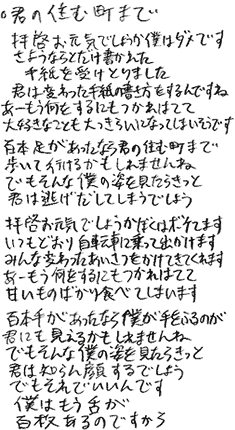 。君の住む町まで
拝啓お元気でしょうか僕はダメです
さようならとだけ書かれた
手紙を受けとりました
君は変わった手紙の書き方をするんですね
あーもう何をするにもつかれはてて
大好きなことも大っきらいになってしまいそうです
百本足があったなら君の住む町まで
歩いて行けるかもしれませんね
でもそんな僕の姿を見たらきっと
君は逃げだしてしまうでしょう
拝啓お元気でしょうかぼくはボケてます
いつもどおり自転車に乗って出かけます
みんな変わったあいさつをかけてきてくれます
あーもう何をするにもつかれはてて
甘いものばかり食べてしまいます
百本手があったなら僕が手をふるのが
君にも見えるかもしれませんね
でもそんな僕の姿を見たらきっと
君は知らん顔するでしょう
でもそれでいいんです
僕はもう舌が
百枚あるのですから